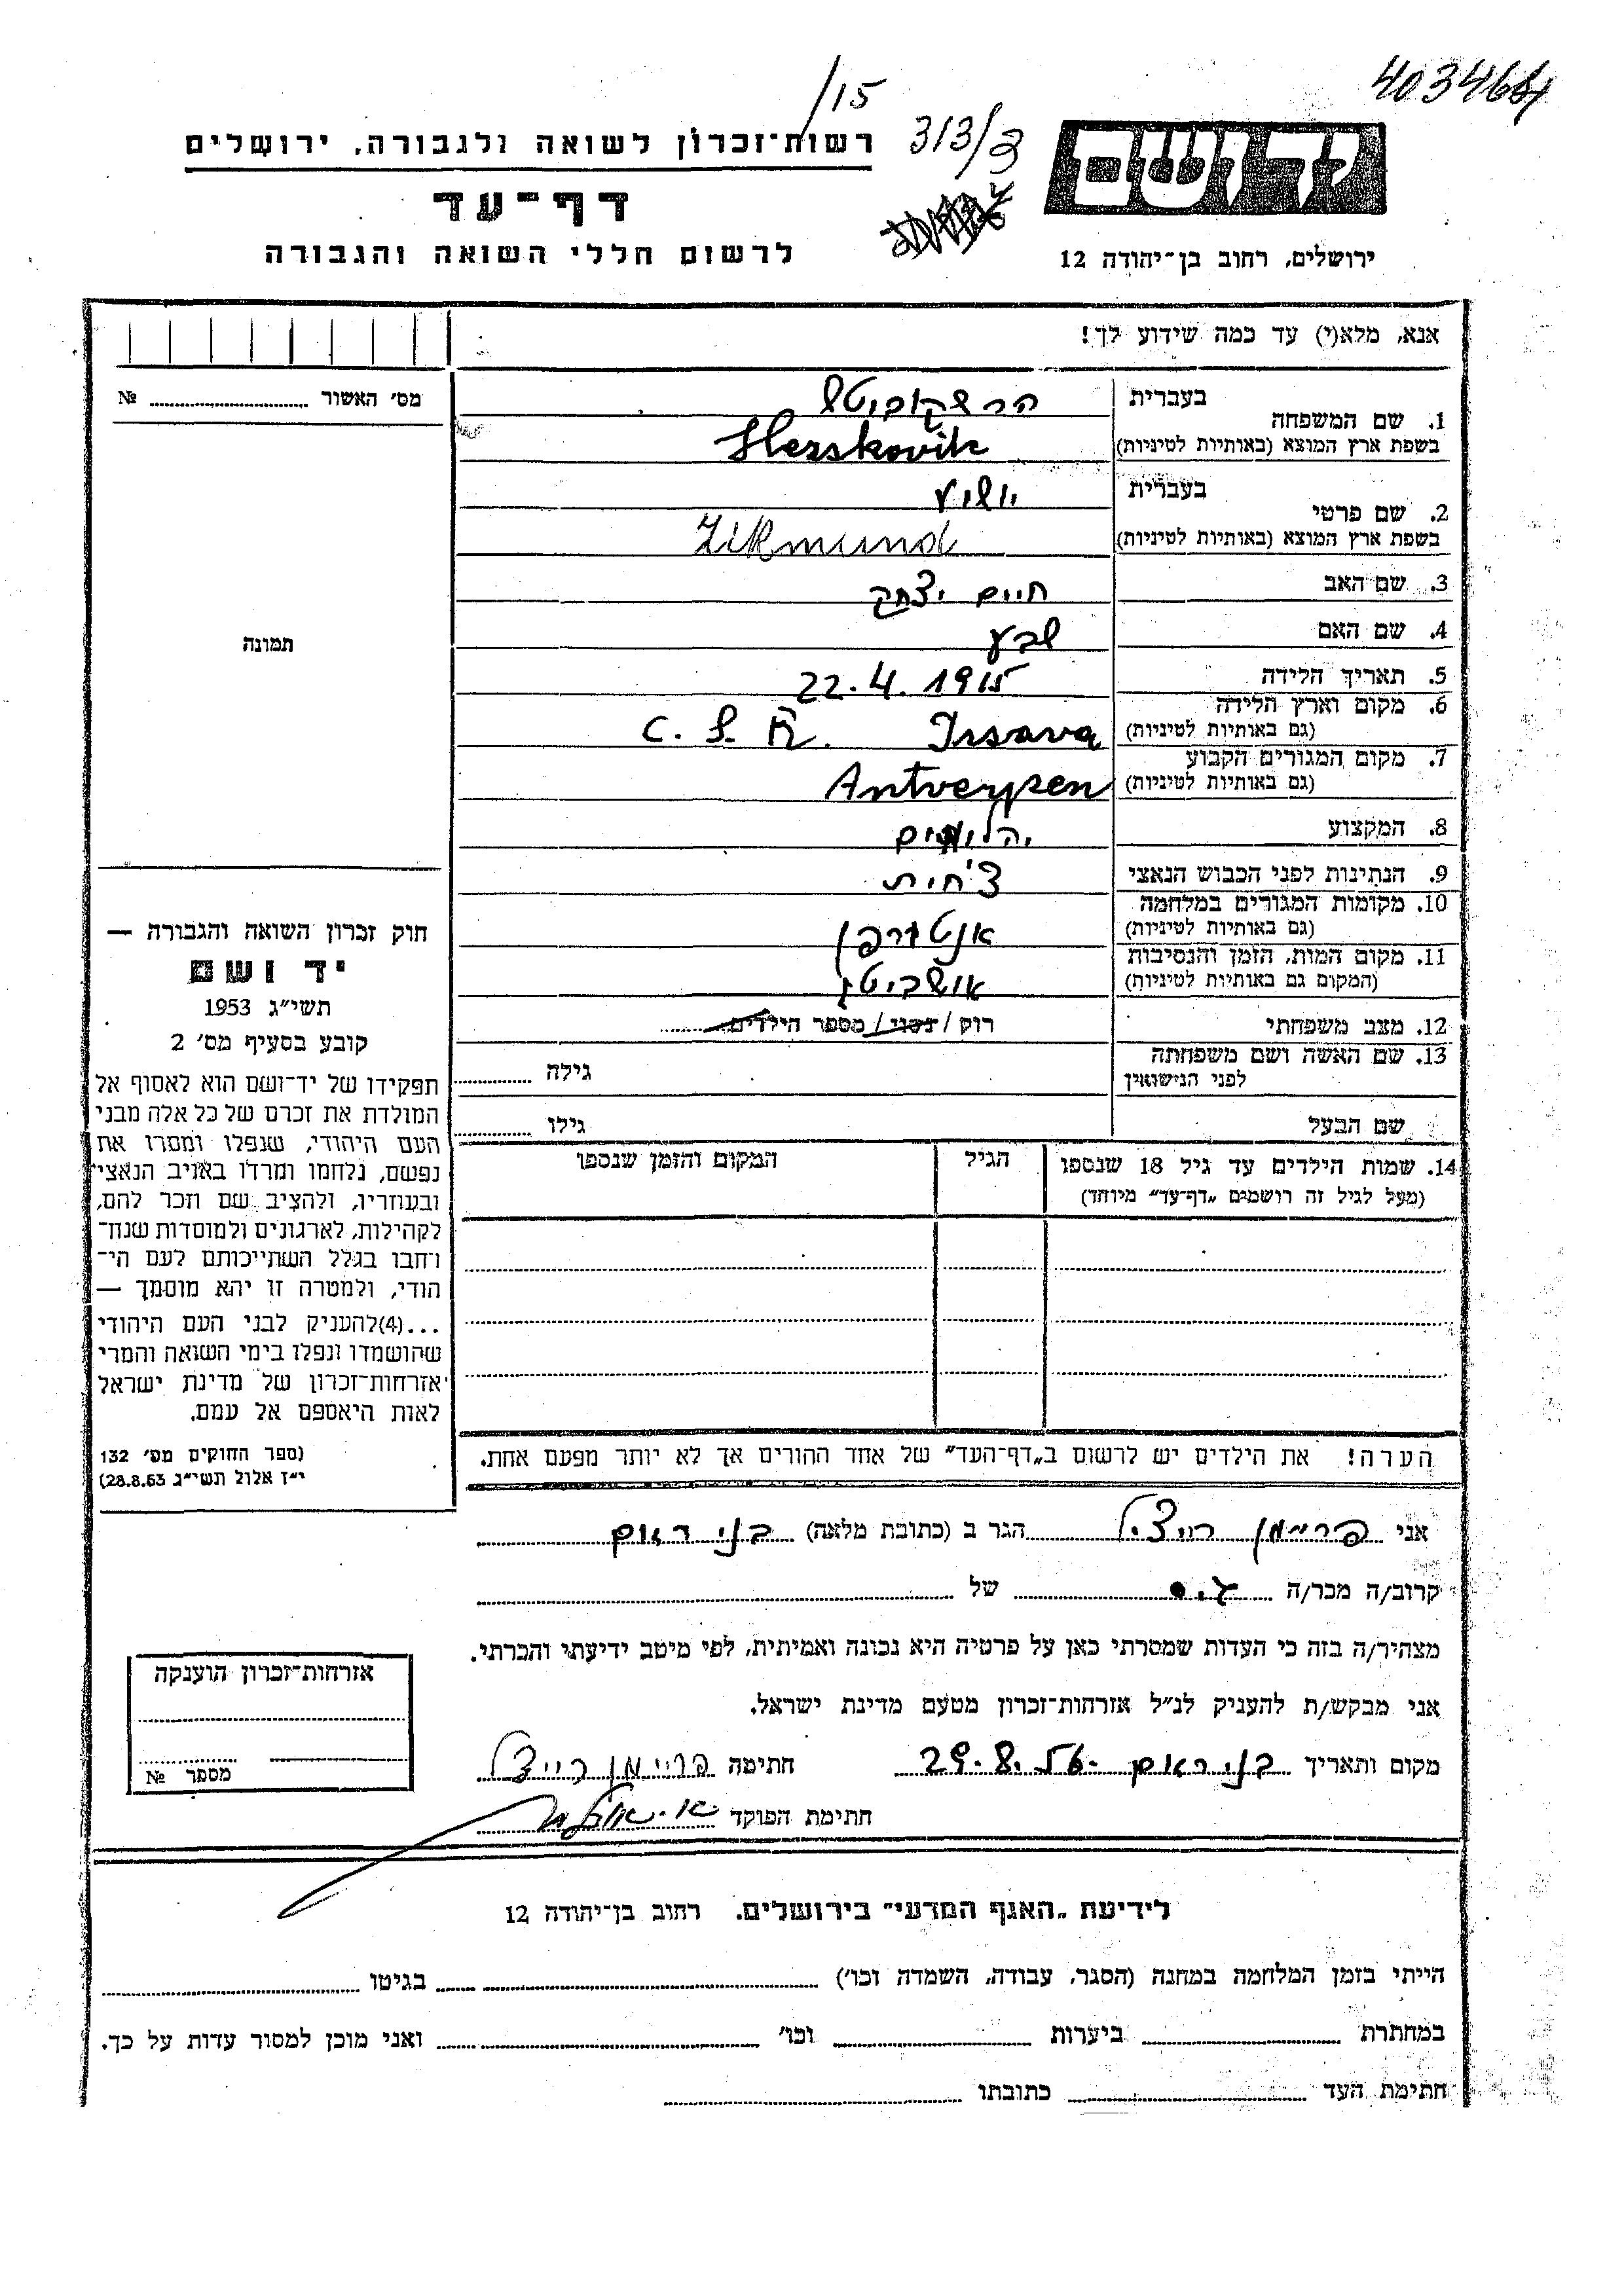 403464
/15
313/3
יד ושם
רשות־זכרון לשואה ולגבורה, ירושלים
דף־עד
לרשום חללי השואה והגבורה
ירושלים, רחוב בן־יהודה 12
אנא, מלא(י) עד כמה שידוע לך!
מס׳ האשור № 
1. שם המשפחה
בעברית הרשקוביטש
בשפת ארץ המוצא (באותיות לטיניות) Herskovitc
2. שם פרטי
בעברית יושוע
בשפת ארץ המוצא (באותיות לטיניות) Zikmund
3. שם האב חיים יצחק
4. שם האם שבע
5. תאריך הלידה 22.4.1915
6. מקום וארץ הלידה
(גם באותיות לטיניות) Irsava C.S.R.
7. מקום המגורים הקבוע
(גם באותיות לטיניות) Antverpen
8. המקצוע יהלומים
9. הנתינות לפני הכבוש הנאצי צ׳חית
10. מקומות המגורים במלחמה
(גם באותיות לטיניות) אנטורפן
11. מקום המות, הזמן והנסיבות
(המקום גם באותיות לטיניות) אושביטץ
12. מצב משפחתי רוק / נשוי / מספר הילדים
13. שם האשה ושם משפחתה
לפני הנישואין גילה
שם הבעל גילו
14. שמות הילדים עד גיל 18 שנספו
(מעל לגיל זה רושמים „דף־עד״ מיוחד)
הגיל
המקום והזמן שנספו
הערה! את הילדים יש לרשום ב„דף־העד״ של אחד ההורים אך לא יותר מפעם אחת.
תמונה
חוק זכרון השואה והגבורה —
יד ושם
תשי״ג 1953
קובע בסעיף מס׳ 2
תפקידו של יד־ושם הוא לאסוף אל
המולדת את זכרם של כל אלה מבני
העם היהודי, שנפלו ומסרו את
נפשם, נלחמו ומרדו באויב הנאצי
ובעוזריו, ולהציב שם וזכר להם,
לקהילות, לארגונים ולמוסדות שנח־
רחבו בגלל השתייכותם לעם הי־
הודי, ולמטרה זו יהא מוסמך —
...(4)להעניק לבני העם היהודי
שהושמדו ונפלו בימי השואה והמרי
אזרחות־זכרון של מדינת ישראל
לאות היאספם אל עמם.
(ספר החוקים מס׳ 132
י״ז אלול תשי״ג 28.8.53)
אני פריימן רייצל הגר ב (כתובת מלאה) בני ראם
קרוב/ה מכר/ה של
מצהיר/ה בזה כי העדות שמסרתי כאן על פרטיה היא נכונה ואמיתית, לפי מיטב ידיעתי והכרתי.
אני מבקש/ת להעניק לנ״ל אזרחות־זכרון מטעם מדינת ישראל.
מקום ותאריך בני ראם 29.8.56 חתימה פריימן רייצל
חתימת הפוקד
אזרחות־זכרון הוענקה
מספר №
לידיעת „האגף המדעי״ בירושלים. רחוב בן־יהודה 12
הייתי בזמן המלחמה במחנה (הסגר, עבודה, השמדה וכו׳) בגיטו
במחתרת ביערות וכו׳ ואני מוכן למסור עדות על כך.
חתימת העד כתובתו